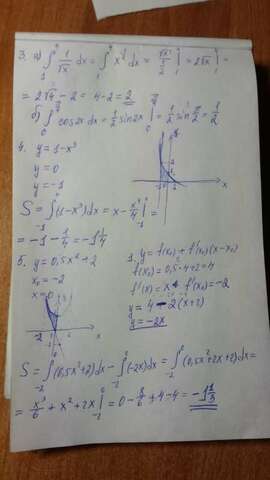 3. а) ∫₁⁴ 1/√x dx = ∫₁⁴ x^(-1/2) dx = √x/(1/2) |₁⁴ = 2√x |₁⁴ =
= 2√4 − 2 = 4 − 2 = 2
б) ∫₀^(π/4) cos2x dx = 1/2 sin2x |₀^(π/4) = 1/2 sin π/2 = 1/2
4. y = 1 − x³
y = 0
y = −1
x
S = ∫₋₁ (1 − x³)dx = x − x⁴/4 |₋₁ =
= −1 − 1/4 = −1 1/4
5. y = 0,5x² + 2
x₀ = −2
x = 0
1. y = f(x₀) + f'(x₀)(x − x₀)
f(x₀) = 0,5 · 4 + 2 = 4
f'(x) = x f'(x₀) = −2
y = 4 − 2(x + 2)
y = −2x
−2
x
S = ∫₋₂⁰ (0,5x² + 2)dx − ∫₋₂⁰ (−2x)dx = ∫₋₂⁰ (0,5x² + 2x + 2)dx =
= x³/6 + x² + 2x |₋₂⁰ = 0 − 8/6 + 4 − 4 = −1 1/3